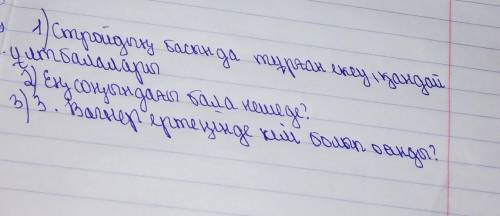 1) Стройдың басында тұрған екеу, қандай
ұлт балалары
2) Ең соңындағы бала нешеде?
3) 3. Вагнер ертеңінде кім болып ойнды?